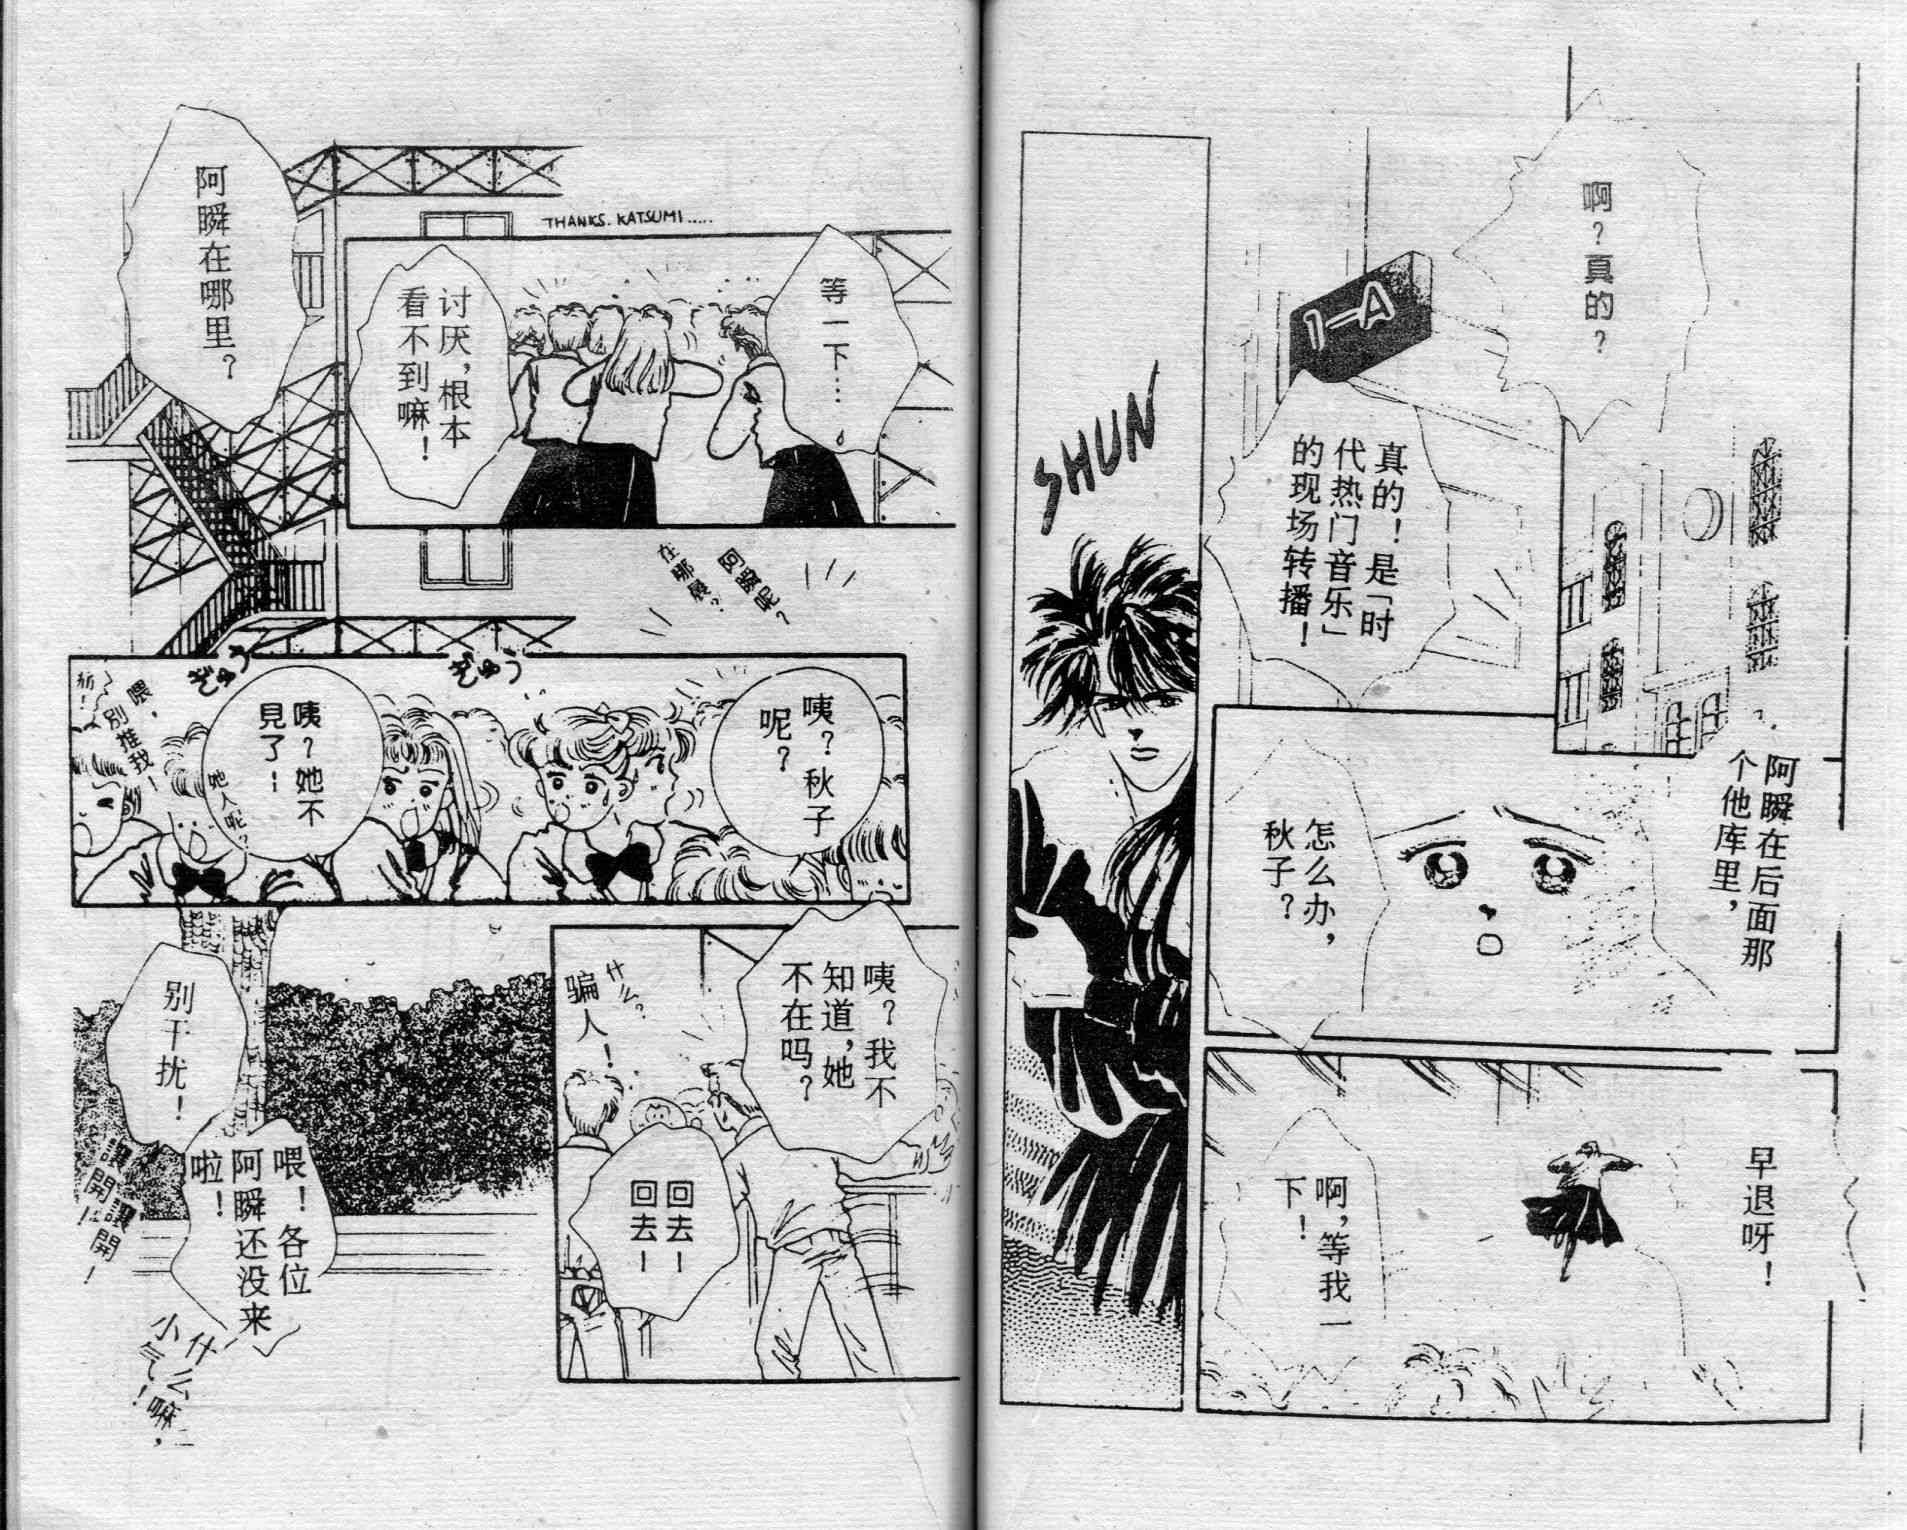 啊？真的？
1-A
真的！是「时
代热门音乐」
的现场转播！
SHUN
阿瞬在后面那
个他库里，
怎么办，
秋子？
早退呀！
啊，等我一
下！
THANKS. KATSUMI.....
等一下……
讨厌，根本
看不到嘛！
阿瞬在哪里？
阿瞬呢？
在哪裏？
ぎゅう
ぎゅう
咦？秋子
呢？
咦？她不
見了！
她人呢？
喂，
別推我！
咦？我不
知道，她
不在吗？
什么？
骗人！
回去！
回去！
别干扰！
喂！各位
阿瞬还没来
啦！
讓開！
讓開！
什么嘛，
小气！